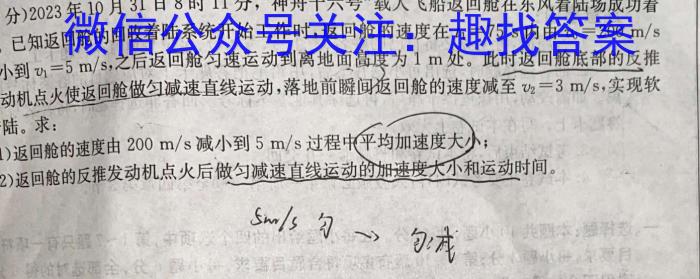 分)2023年10月31日8时11分,神舟十六号载人飞船返回舱在东风着陆场成功着
微信公众号关注:趣找答案
已知返回舱的回收着陆系统开始工作时,返回舱的速度在 m/s
小到 v₁=5 m/s,之后返回舱匀速运动到离地面高度为 1 m 处。此时返回舱底部的反推
动机点火使返回舱做匀减速直线运动,落地前瞬间返回舱的速度减至 v₂=3 m/s,实现软
陆。求:
1)返回舱的速度由 200 m/s 减小到 5 m/s 过程中平均加速度大小;
2)返回舱的反推发动机点火后做匀减速直线运动的加速度大小和运动时间。
5m/s 匀 → 匀减